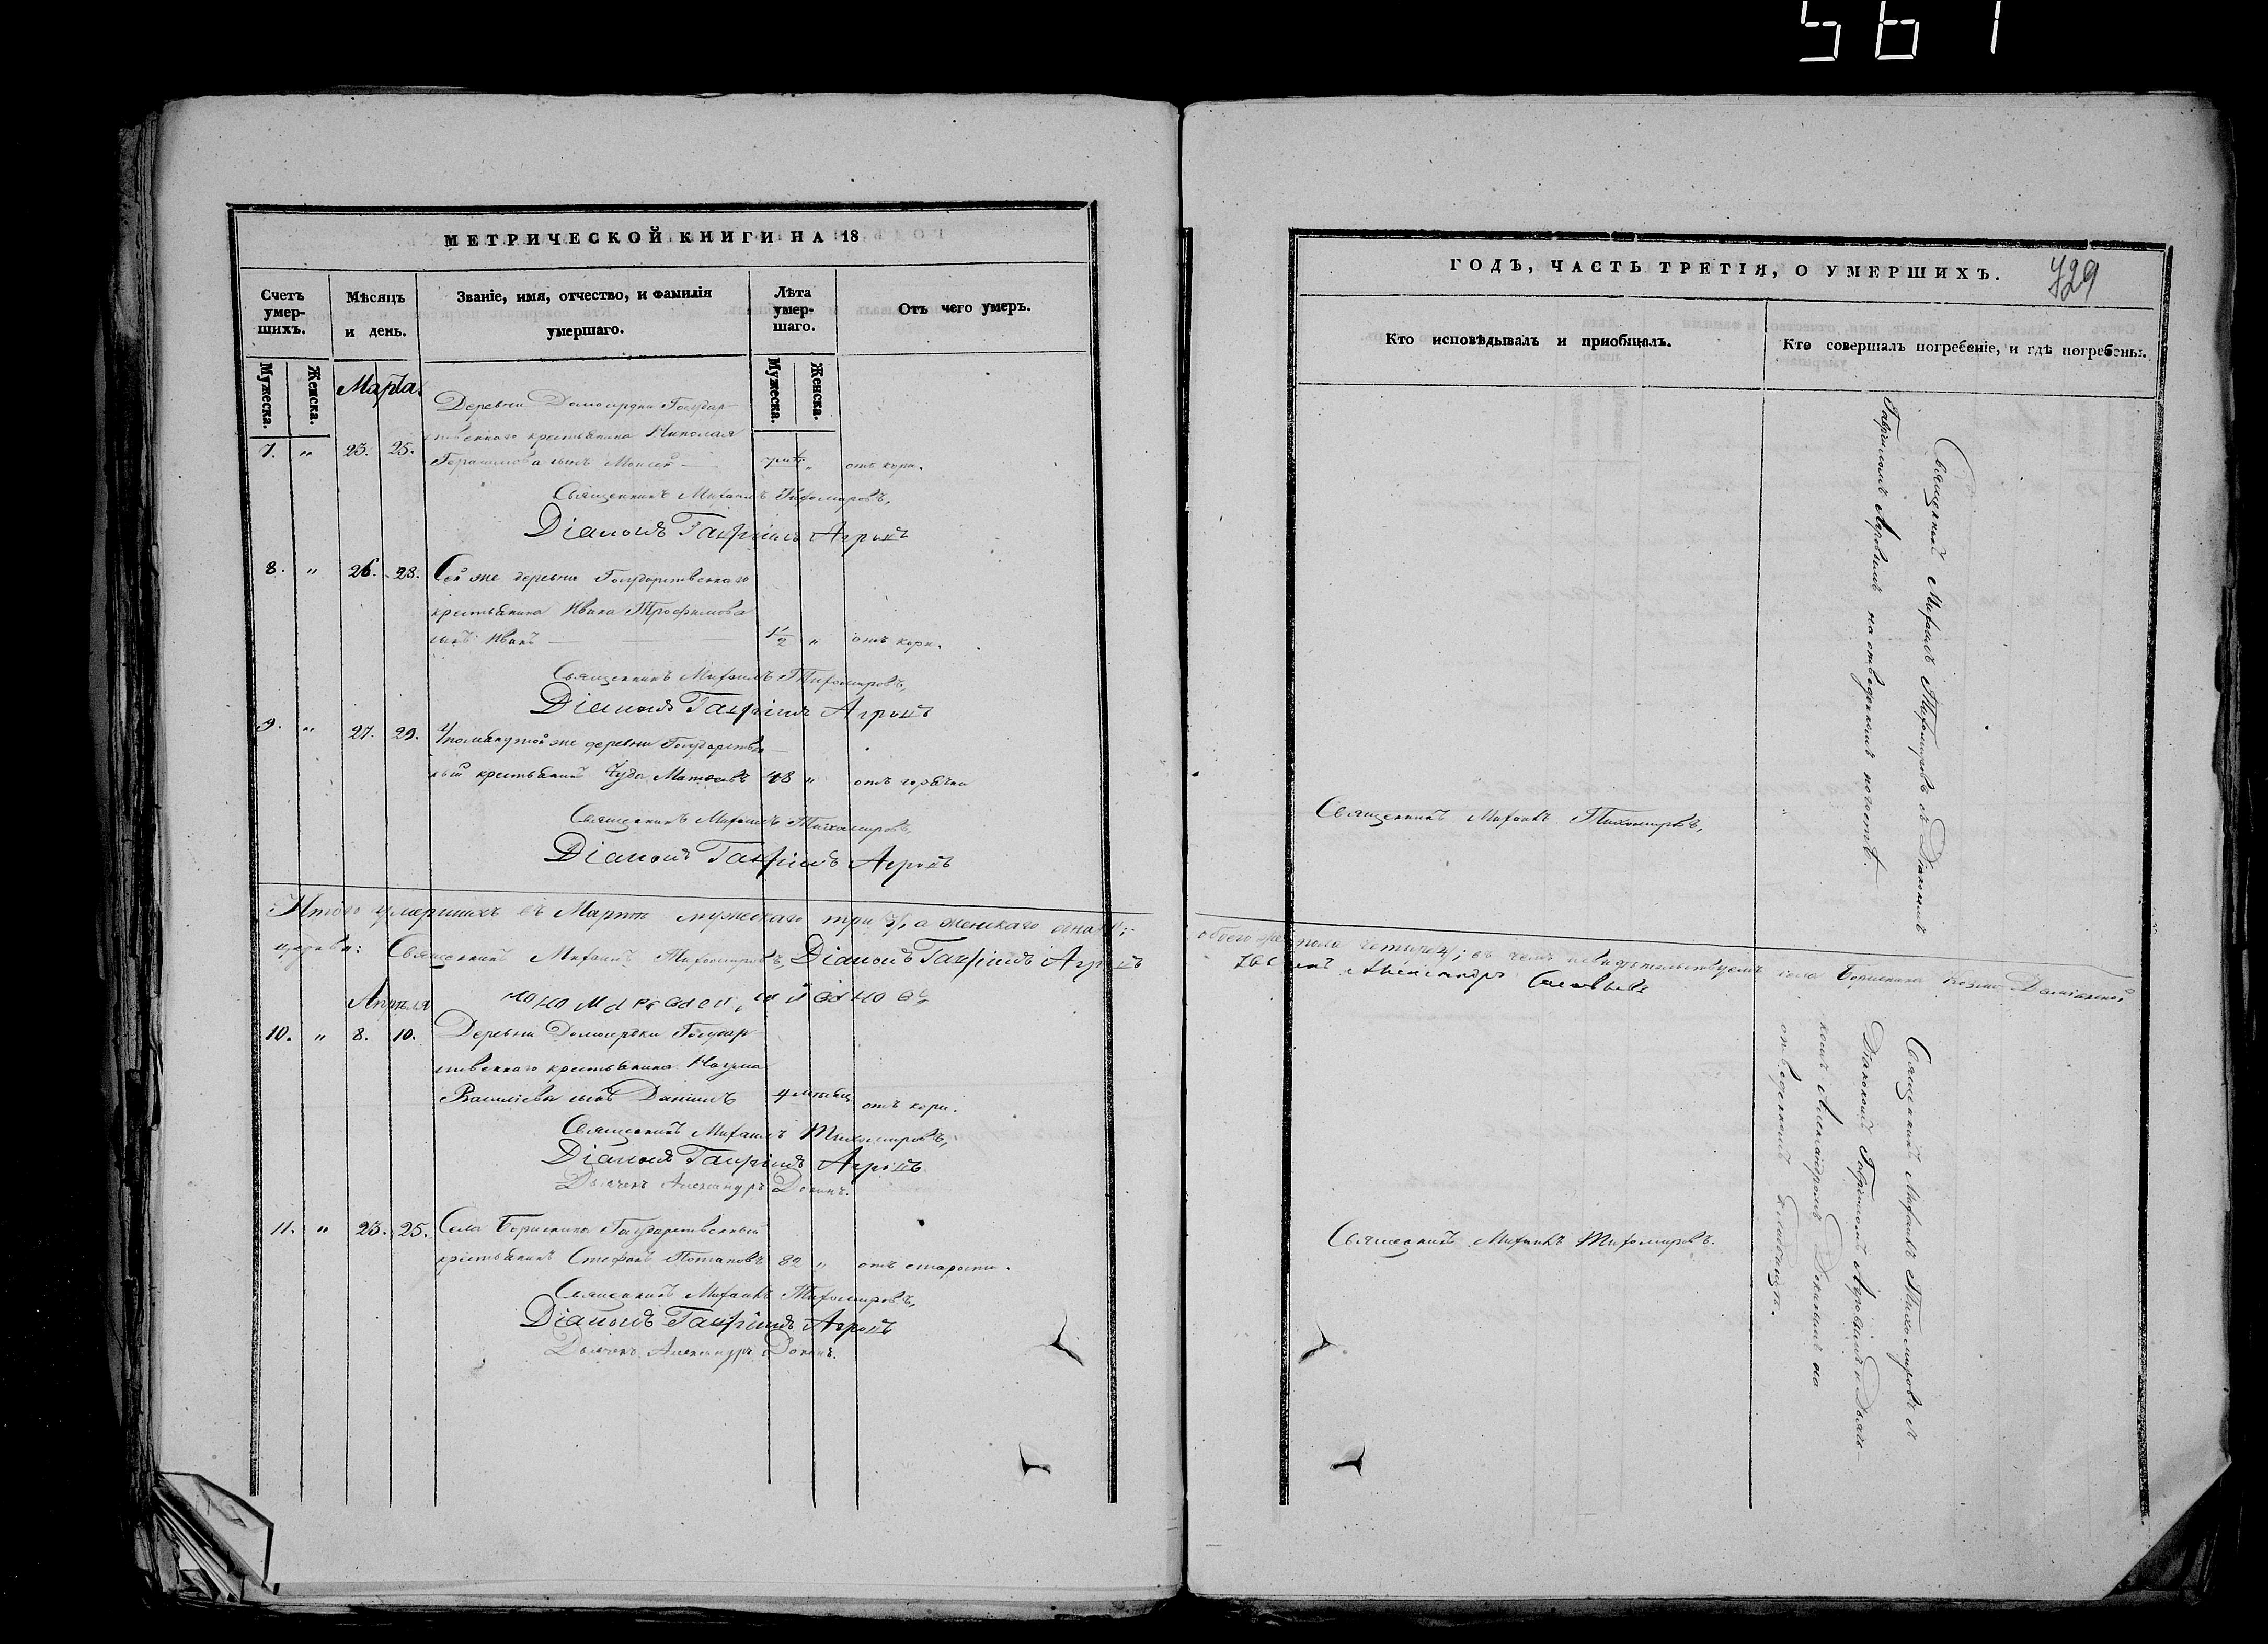 561
МЕТРИЧЕСКОЙ КНИГИ НА 18
Счетъ умер-шихъ.
Мѣсяцъ и день.
Званіе, имя, отчество, и фамилія умершаго.
Лѣта умер-шаго.
Отъ чего умеръ.
Мужеска.
Женска.
Мужеска.
Женска.
Марта.
Деревни Государ-
ственнаго крестьянина Николая
7. " 23. 25. Герасимова сынъ Моисей — " отъ кори.
Священникъ Михаилъ Тихомировъ,
Діаконъ Гавріилъ Агровъ
8. " 26. 28. Сей же деревни Государственнаго
крестьянина Ивана Трофимова
сынъ Иванъ — 1 1/2 " отъ кори.
Священникъ Михаилъ Тихомировъ,
Діаконъ Гавріилъ Агровъ
9. " 27. 29. Упомянутой же деревни Государствен-
ный крестьянинъ Матвѣевъ 48 " отъ горячки
Священникъ Михаилъ Тихомировъ,
Діаконъ Гавріилъ Агровъ
Итого умершихъ въ Мартѣ мужескаго три 3, а женскаго одна 1;
церкви: Священникъ Михаилъ Тихомировъ, Діаконъ Гавріилъ Агровъ
Апрѣля
10. " 8. 10. Деревни Государ-
ственнаго крестьянина
Василіева сынъ Даніилъ 4 мѣсяц. отъ кори.
Священникъ Михаилъ Тихомировъ,
Діаконъ Гавріилъ Агровъ
Дьячекъ Александръ
11. " 23. 25. Села Борискина Государственный
крестьянинъ Стефанъ Потаповъ 82 " отъ старости.
Священникъ Михаилъ Тихомировъ,
Діаконъ Гавріилъ Агровъ
Дьячекъ Александръ
ГОДЪ, ЧАСТЬ ТРЕТІЯ, О УМЕРШИХЪ.
729
Кто исповѣдывалъ и пріобщалъ.
Кто совершалъ погребеніе, и гдѣ погребены.
Священникъ Михаилъ Тихомировъ съ Діакономъ
Гавріиломъ Агровымъ на отведенномъ погостѣ.
Священникъ Михаилъ Тихомировъ,
обоего пола четыре 4; въ чемъ и свидѣтельствуемъ села Борискина Козмо-Даміанской
Александръ
Священникъ Михаилъ Тихомировъ.
Священникъ Михаилъ Тихомировъ съ
Діакономъ Гавріиломъ Агровымъ и Дьяч-
комъ Александромъ на
отведенномъ кладбищѣ.